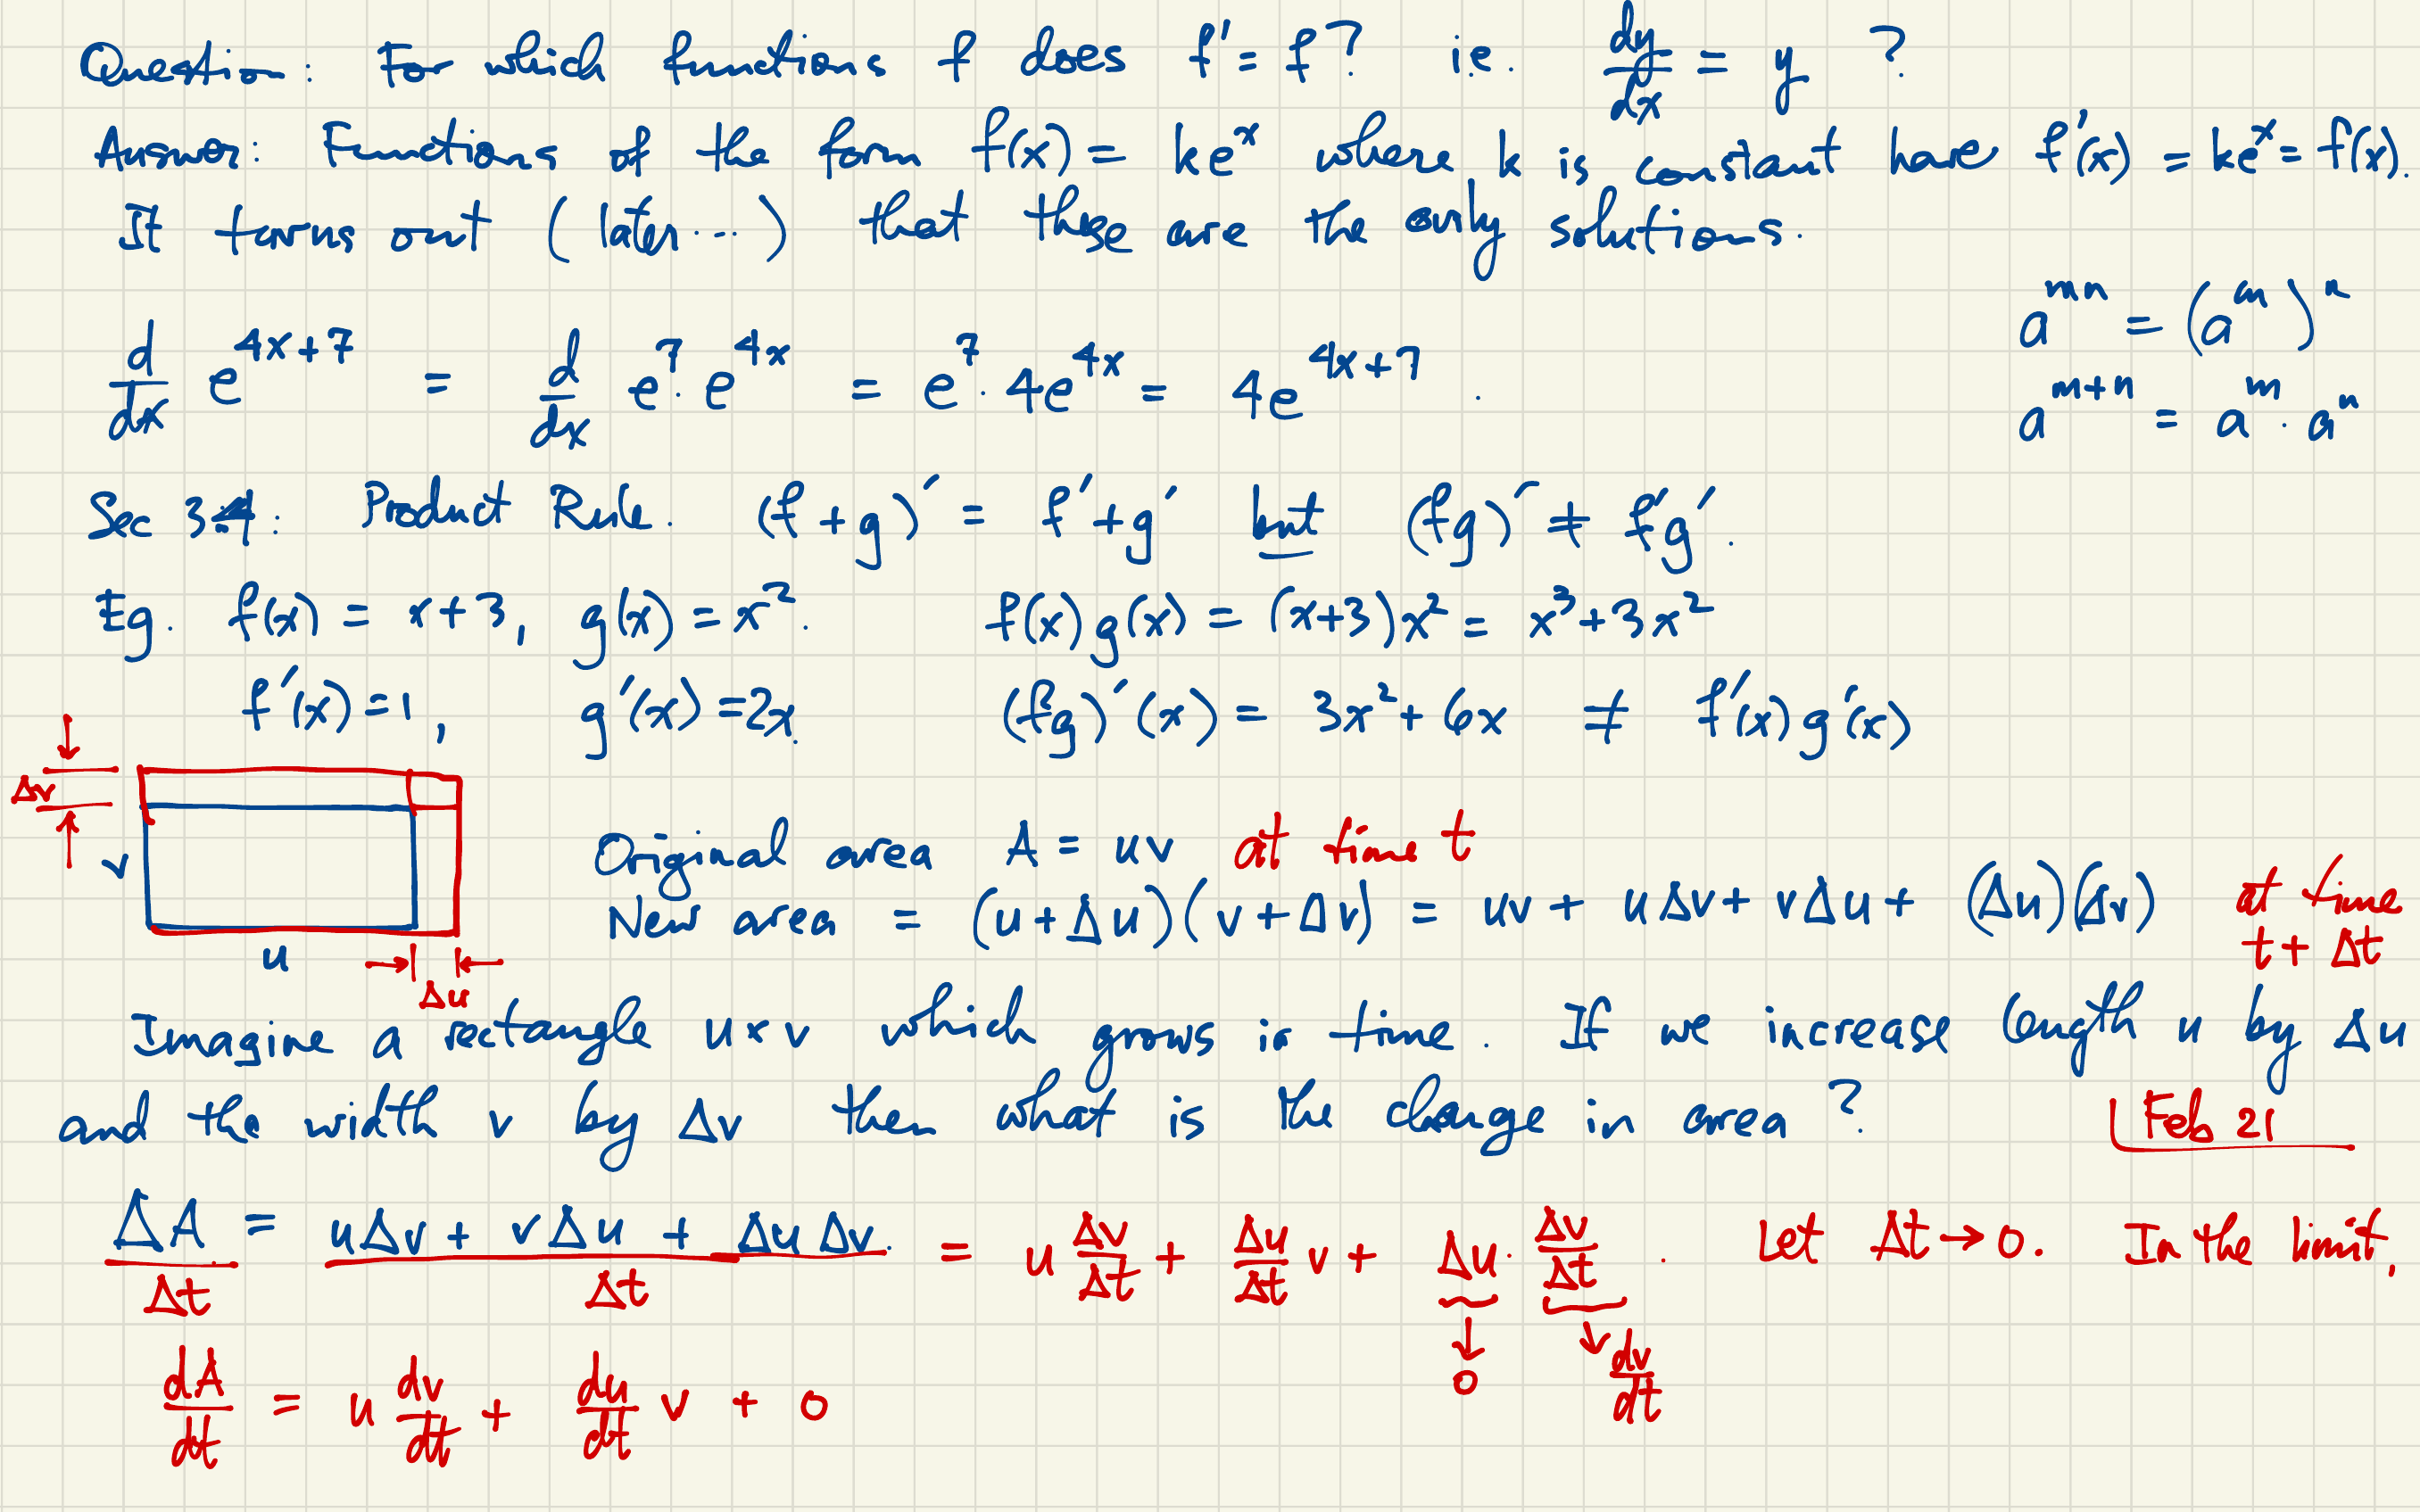 Question: For which functions f does f' = f? i.e. dy/dx = y ?
Answer: Functions of the form f(x) = ke^x where k is constant have f'(x) = ke^x = f(x).
It turns out (later...) that these are the only solutions.
a^{mn} = (a^m)^n
d/dx e^{4x+7} = d/dx e^7·e^{4x} = e^7·4e^{4x} = 4e^{4x+7}.
a^{m+n} = a^m·a^n
Sec 3.4: Product Rule. (f+g)' = f'+g' but (fg)' ≠ f'g'.
Eg. f(x) = x+3, g(x) = x^2. f(x)g(x) = (x+3)x^2 = x^3+3x^2
f'(x)=1, g'(x)=2x. (fg)'(x) = 3x^2+6x ≠ f'(x)g'(x)
Δv
v
u
Δu
Original area A = uv at time t
New area = (u+Δu)(v+Δv) = uv + uΔv + vΔu + (Δu)(Δv) at time t+Δt
Imagine a rectangle u×v which grows in time. If we increase length u by Δu
and the width v by Δv then what is the change in area?
Feb 21
ΔA/Δt = (uΔv + vΔu + ΔuΔv)/Δt = u Δv/Δt + Δu/Δt v + Δu·Δv/Δt. Let Δt→0. In the limit,
↓ 0 ↘ dv/dt
dA/dt = u dv/dt + du/dt v + 0